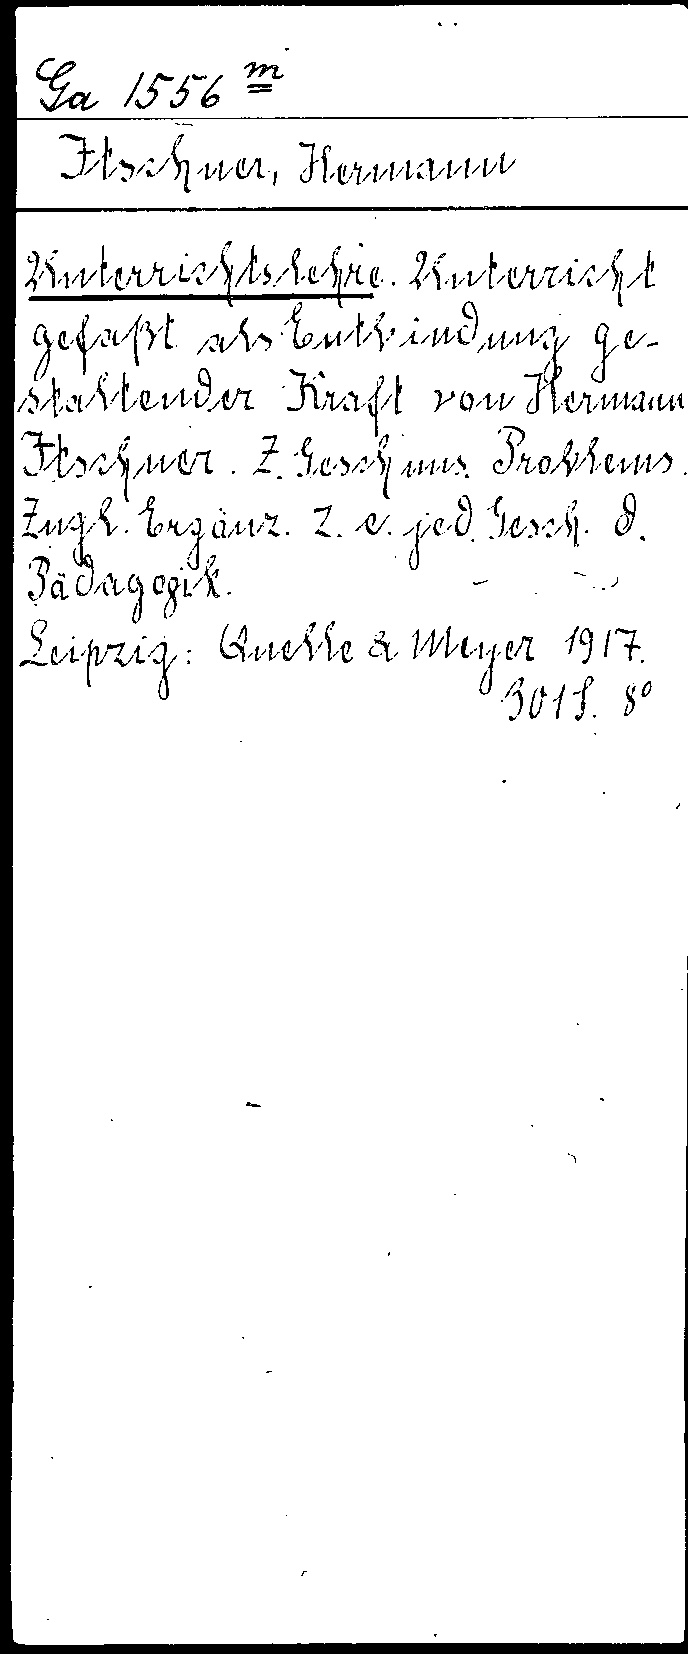 Ga 1556 m
Itschner, Hermann
Unterrichtslehre. Unterricht
gefaßt als Entbindung ge-
staltender Kraft von Hermann
Itschner. Z. Gesch uns. Problems.
Zugl. Ergänz. z. e. jed. Gesch. d.
Pädagogik.
Leipzig: Quelle & Meyer 1917.
301 S. 8°